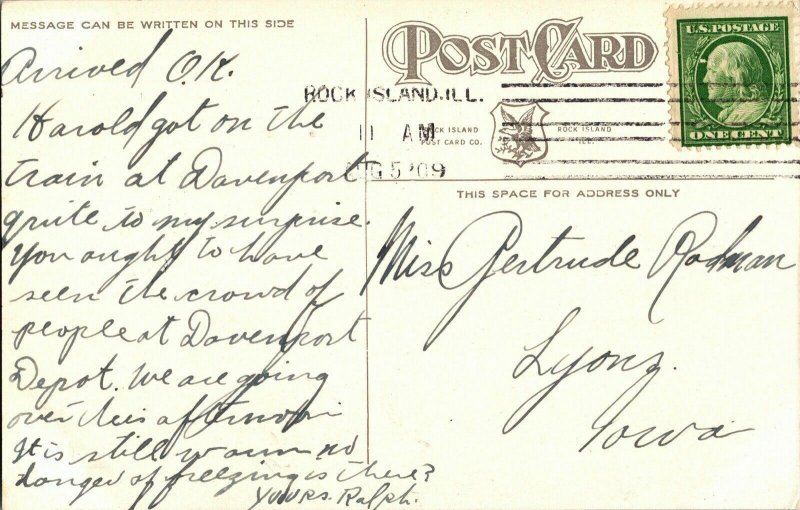 MESSAGE CAN BE WRITTEN ON THIS SIDE
Arrived O.K.
Harold got on the
train at Davenport
quite to my surprise.
You ought to have
seen the crowd of
people at Davenport
Depot. We are going
over this afternoon
It is still warm no
danger of freezing is there?
Yours. Ralph.
POST CARD
ROCK ISLAND. ILL.
11 AM
AUG 5 '09
ROCK ISLAND
POST CARD CO.
ROCK ISLAND
ILL.
U.S. POSTAGE
ONE CENT
THIS SPACE FOR ADDRESS ONLY
Miss Gertrude Rodman
Lyons.
Iowa